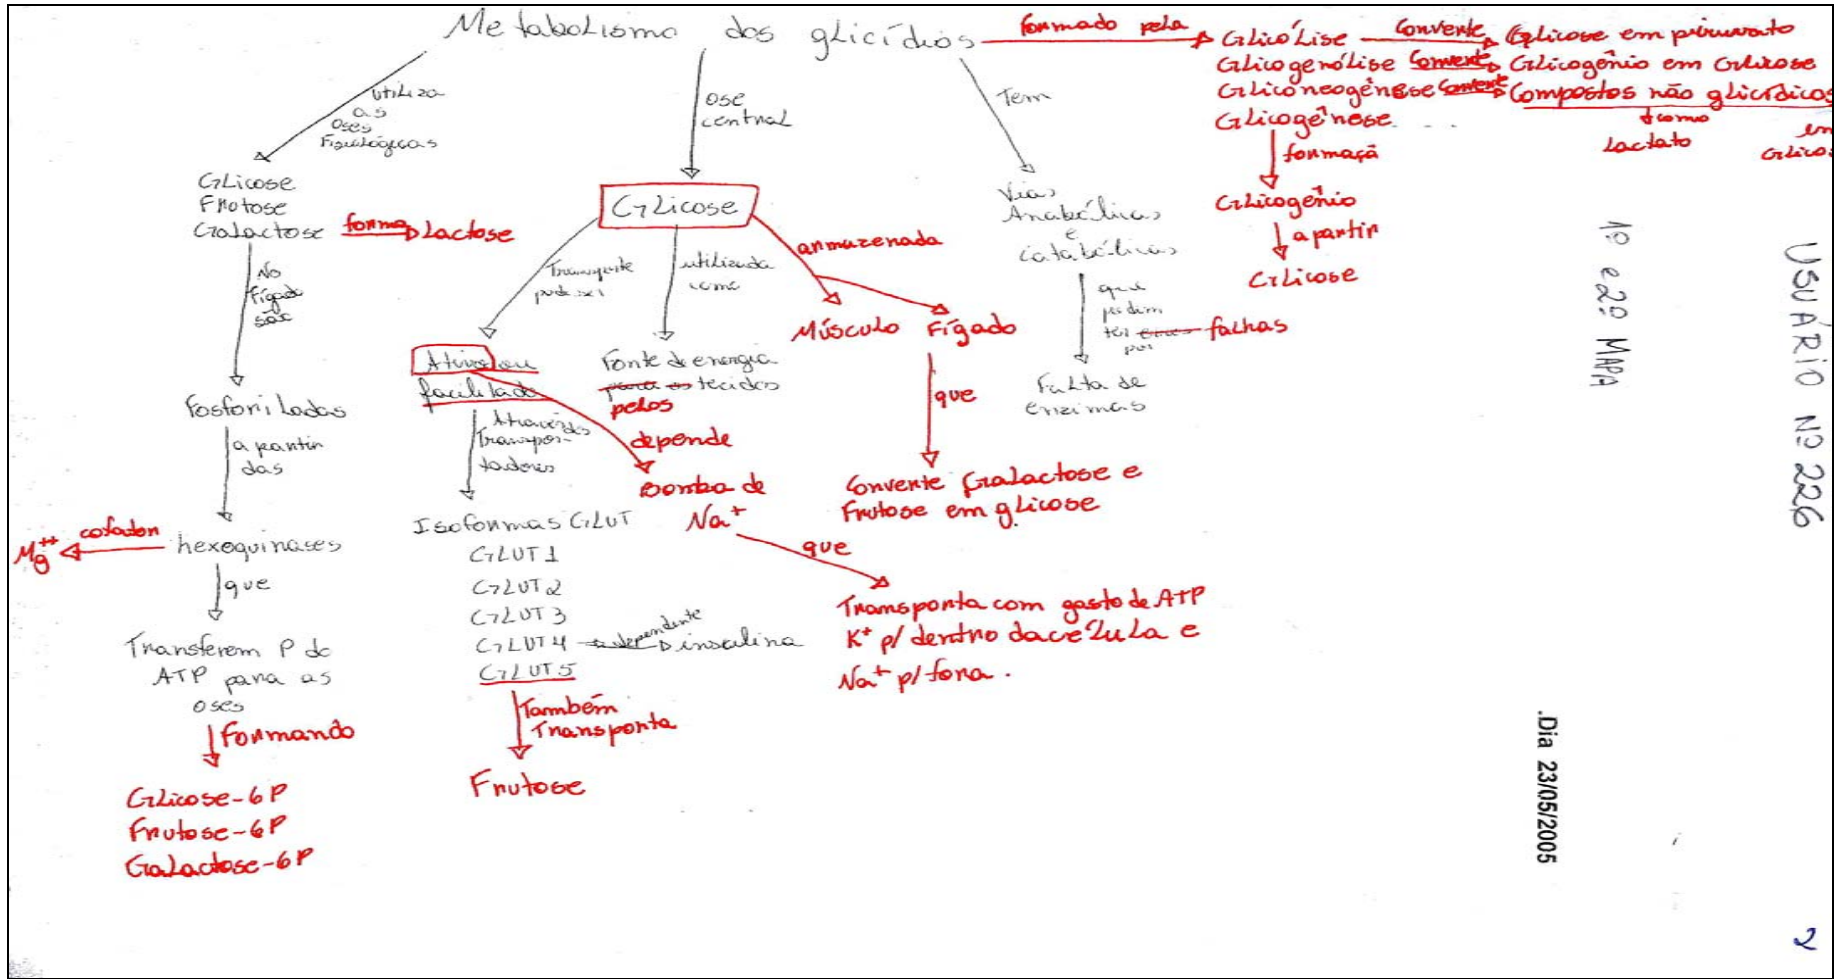 Metabolismo dos glicídios
formado pela
Glicólise
Converte
Glicose em piruvato
Glicogenólise
Converte
Glicogênio em Glicose
Gliconeogênese
Converte
Compostos não glicídicos
como
Lactato
em
Glico
Glicogênese...
formaçã
Glicogênio
a partir
Glicose
utiliza
as
Oses
Fisiológicas
Glicose
Frutose
Galactose
forma
Lactose
No
fígado
são
Fosforiladas
a partir
das
hexoquinases
cofator
Mg++
que
Transferem P do
ATP para as
oses
Formando
Glicose-6P
Frutose-6P
Galactose-6P
ose
central
Glicose
Transporte
pode ser
Ativo ou
facilitado
Através dos
Transpor-
tadores
Isoformas GLUT
GLUT1
GLUT2
GLUT3
GLUT4
dependente
insulina
GLUT5
Também
Transporta
Frutose
depende
Bomba de
Na+
que
Transporta com gasto de ATP
K+ p/ dentro da célula e
Na+ p/ fora.
utilizada
como
Fonte de energia
para os tecidos
pelos
armazenada
Músculo
Fígado
que
Converte Galactose e
Frutose em glicose
Tem
Vias
Anabólicas
e
catabólicas
que
podem
ter
falhas
por
Falta de
enzimas
1º e 2º MAPA
USUÁRIO Nº 226
.Dia 23/05/2005
2